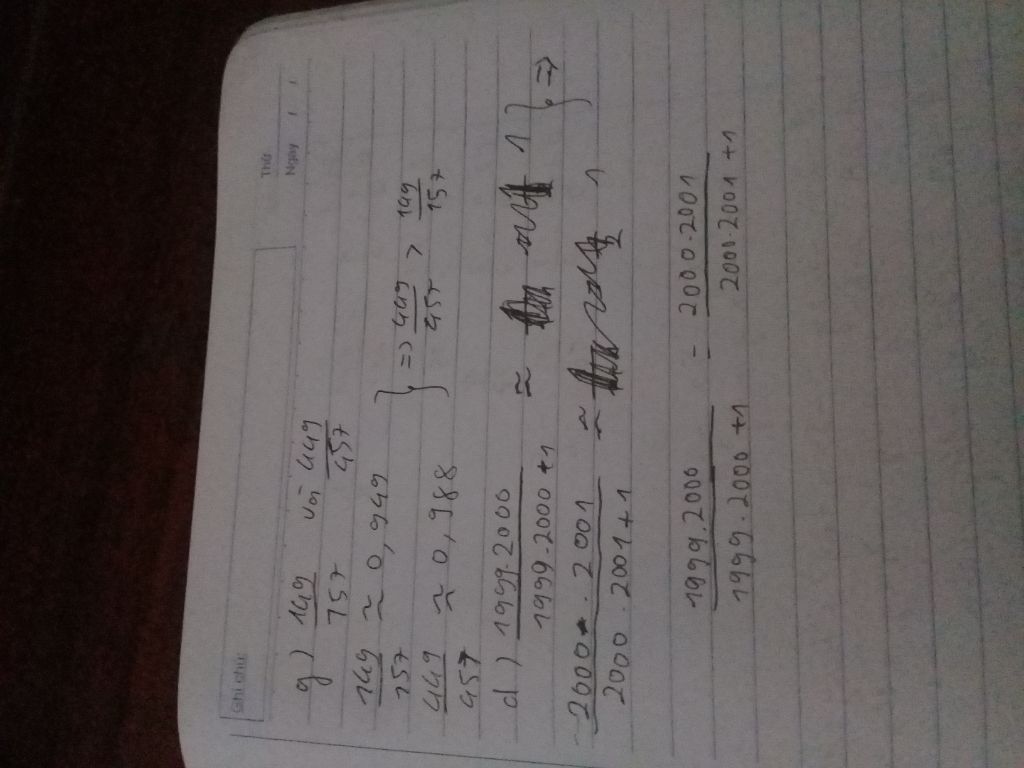 Ghi chú:
Thứ
Ngày / /
g) 149/157 và 449/457
149/157 ≈ 0,949
449/457 ≈ 0,988 } => 449/457 > 149/157
d) 1999.2000/1999.2000+1 ≈ 1
2000.2001/2000.2001+1 ≈ 1 } =>
1999.2000/1999.2000+1 - 2000.2001/2000.2001+1